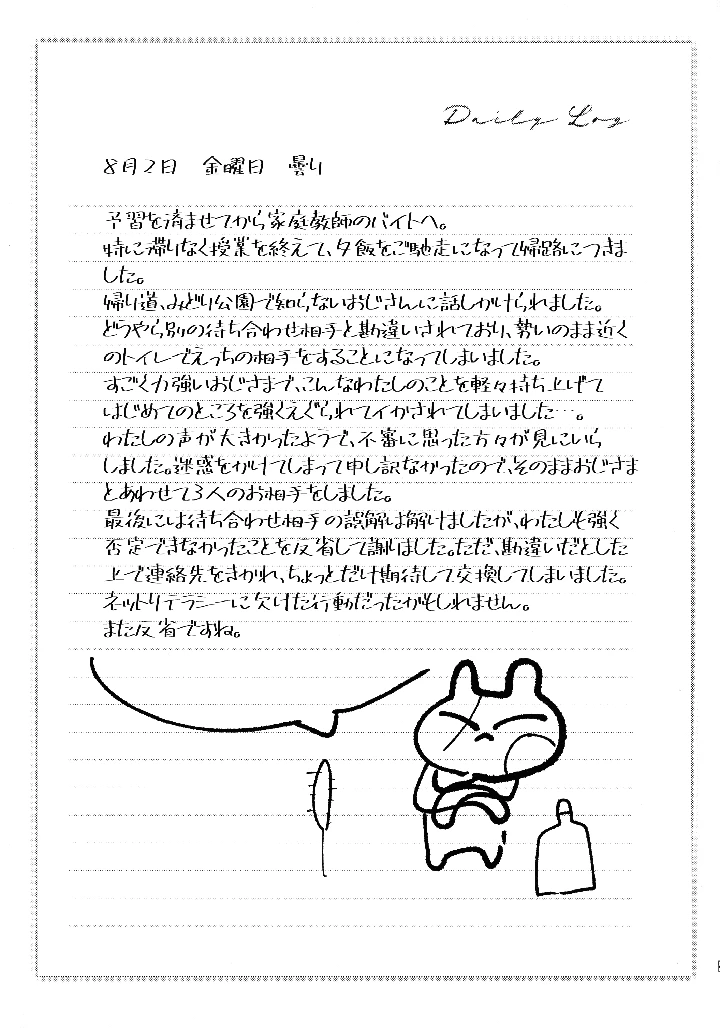 Daily Log
8月2日 金曜日 曇り
予習を済ませてから家庭教師のバイトへ。
特に滞りなく授業を終えて、夕飯をご馳走になって帰路につきま
した。
帰り道、みどり公園で知らないおじさんに話しかけられました。
どうやら別の待ち合わせ相手と勘違いされており、勢いのまま近く
のトイレでえっちの相手をすることになってしまいました。
すごく力強いおじさまで、こんなわたしのことを軽々持ち上げて
はじめてのところを強くえぐられてイかされてしまいました…。
わたしの声が大きかったようで、不審に思った方々が見にいら
しました。迷惑をかけてしまって申し訳なかったので、そのままおじさま
とあわせて3人のお相手をしました。
最後には待ち合わせ相手の誤解は解けましたが、わたしも強く
否定できなかったことを反省して謝りました。ただ、勘違いだとした
上で連絡先をきかれ、ちょっとだけ期待して交換してしまいました。
ネットリテラシーに欠けた行動だったかもしれません。
また反省ですね。